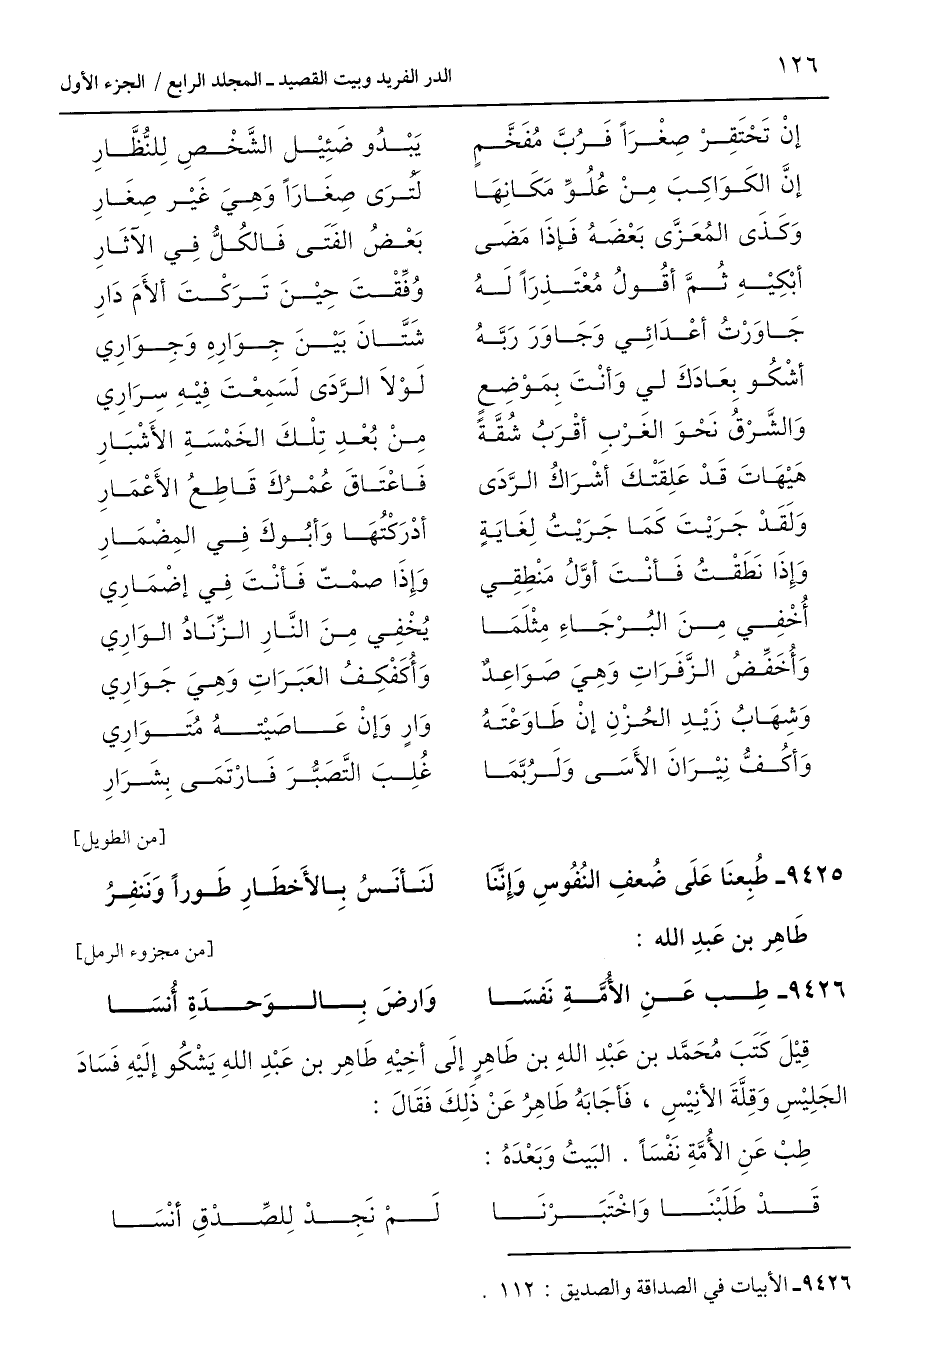 ١٢٦ الدر الفريد وبيت القصيد ـ المجلد الرابع / الجزء الأول
إنْ تَحْتَقِرْ صِغَراً فَرُبَّ مُفَخَّمٍ يَبْدُو ضَئِيْلَ الشَّخْصِ لِلنُّظَّارِ
إنَّ الكَوَاكِبَ مِنْ عُلُوِّ مَكَانِهَا لَتُرَى صِغَاراً وَهِيَ غَيْرُ صِغَارِ
وَكَذَى المُعَزَّى بَعْضَهُ فَإذَا مَضَى بَعْضُ الفَتَى فَالكُلُّ فِي الآثَارِ
أبْكِيْهِ ثُمَّ أقُولُ مُعْتَذِرَاً لَهُ وُفِّقْتَ حِيْنَ تَرَكْتَ ألأمَ دَارِ
جَاوَرْتُ أعْدَائِي وَجَاوَرَ رَبَّهُ شَتَّانَ بَيْنَ جِوَارِهِ وَجِوَارِي
أشْكُو بِعَادَكَ لِي وَأنْتَ بِمَوْضِعٍ لَوْلَا الرَّدَى لَسَمِعْتَ فِيْهِ سِرَارِي
وَالشَّرْقُ نَحْوَ الغَرْبِ أقْرَبُ شُقَّةً مِنْ بُعْدِ تِلْكَ الخَمْسَةِ الأشْبَارِ
هَيْهَاتَ قَدْ عَلِقَتْكَ أشْرَاكُ الرَّدَى فَاعْتَاقَ عُمْرُكَ قَاطِعُ الأعْمَارِ
وَلَقَدْ جَرَيْتَ كَمَا جَرَيْتُ لِغَايَةٍ أدْرَكْتُهَا وَأبُوكَ فِي المِضْمَارِ
وَإذَا نَطَقْتُ فَأنْتَ أوَّلُ مَنْطِقِي وَإذَا صَمَتُّ فَأنْتَ فِي إضْمَارِي
أُخْفِي مِنَ البُرَحَاءِ مِثْلَمَا يُخْفِي مِنَ النَّارِ الزِّنَادُ الوَارِي
وَأُخَفِّضُ الزَّفَرَاتِ وَهِيَ صَوَاعِدٌ وَأُكَفْكِفُ العَبَرَاتِ وَهِيَ جَوَارِي
وَشِهَابُ زَيْدِ الحُزْنِ إنْ طَاوَعْتَهُ وَارٍ وَإنْ عَاصَيْتَهُ مُتَوَارِي
وَأكُفُّ نِيْرَانَ الأسَى وَلَرُبَّمَا غُلِبَ التَّصَبُّرَ فَارْتَمَى بِشَرَارِ
[من الطويل]
٩٤٢٥ـ طُبِعنَا عَلَى ضُعفِ النُّفُوسِ وَإنَّنَا لَنَأنَسُ بِالأخطَارِ طَوراً وَنَنفِرُ
طَاهِر بن عَبدِ الله : [من مجزوء الرمل]
٩٤٢٦ـ طِب عَنِ الأُمَّةِ نَفسَا وَارضَ بِالوَحدَةِ أُنسَا
قِيْلَ كَتَبَ مُحَمَّد بن عَبْدِ اللهِ بن طَاهِرٍ إلَى أخِيْهِ طَاهِر بن عَبْدِ الله يَشْكُو إلَيْهِ فَسَادَ
الجَلِيْسِ وَقِلَّةَ الأنِيْسِ ، فَأجَابَهُ طَاهِرُ عَنْ ذَلِكَ فَقَالَ :
طِبْ عَنِ الأُمَّةِ نَفْسَاً . البَيْتُ وَبَعْدَهُ :
قَدْ طَلَبْنَا وَاخْتَبَرْنَا لَمْ نَجِدْ لِلصِّدْقِ أنْسَا
٩٤٢٦ـ الأبيات في الصداقة والصديق : ١١٢ .